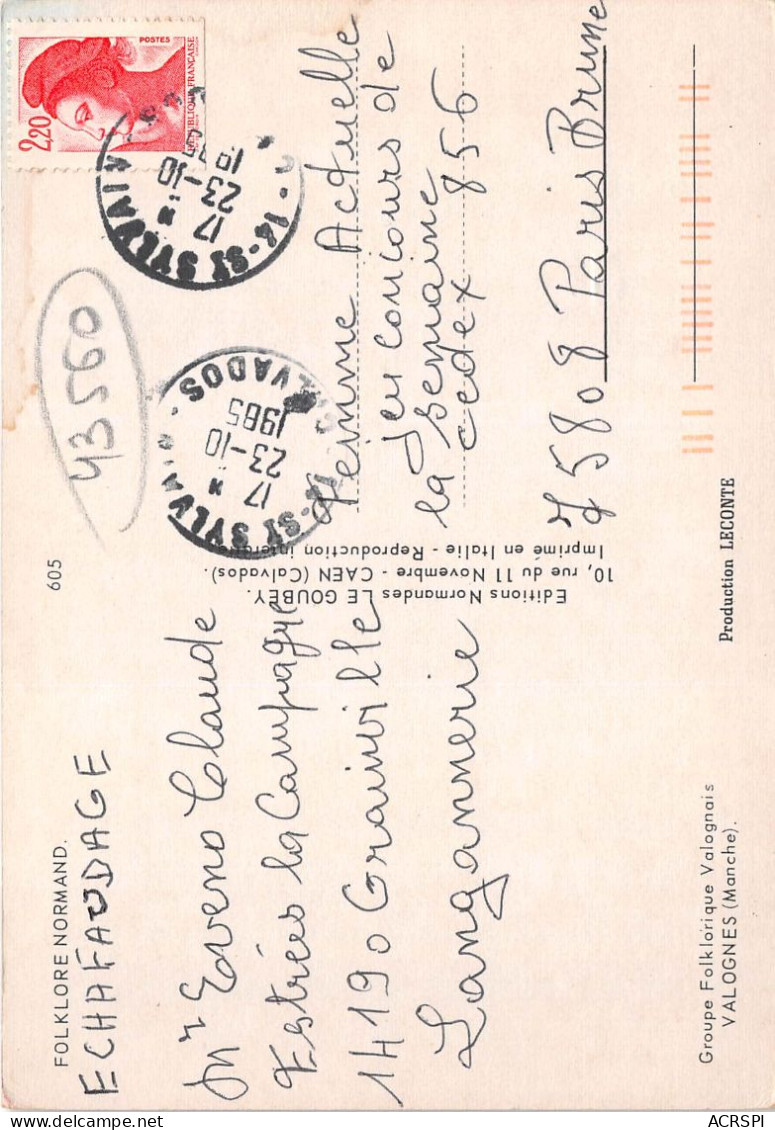 FOLKLORE NORMAND.
605
ECHAFAUDAGE
Mr Eveno Claude
Estrées la Campagne
14190 Grainville
Langannerie
Groupe Folklorique Valognais
VALOGNES (Manche).
Editions Normandes LE GOUBEY.
10, rue du 11 Novembre - CAEN (Calvados).
Imprimé en Italie - Reproduction interdite
Production LECONTE
43560
2,20
POSTES
RÉPUBLIQUE FRANÇAISE
14-ST SYLVAIN
17 H
23-10
1985
14-ST SYLVAIN
CALVADOS
17 H
23-10
1985
Femme Actuelle
Jeu concours de
la semaine
cedex 856
75808 Paris Brune
ACRSPI